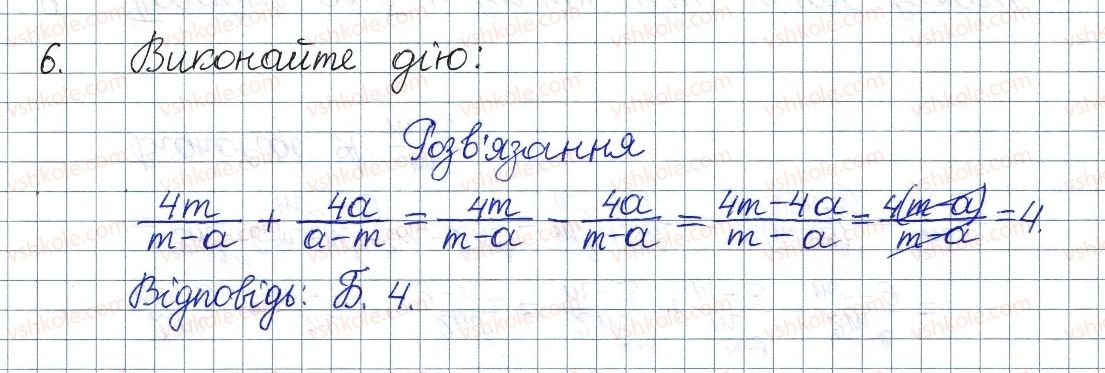 6. Виконайте дію:
Розв'язання
4m/(m-a) + 4a/(a-m) = 4m/(m-a) - 4a/(m-a) = (4m-4a)/(m-a) = 4(m-a)/(m-a) = 4.
Відповідь: Б. 4.